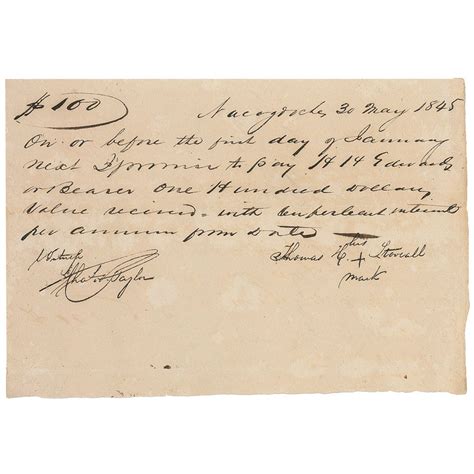 $100
Nacogdoches 30 May 1845
On or before the first day of January
next I promise to pay H H Edwards
or Bearer One Hundred Dollars
Value received with ten per cent interest
per annum from date
Witness
Chas S Taylor
his
Thomas H. + Stovall
mark